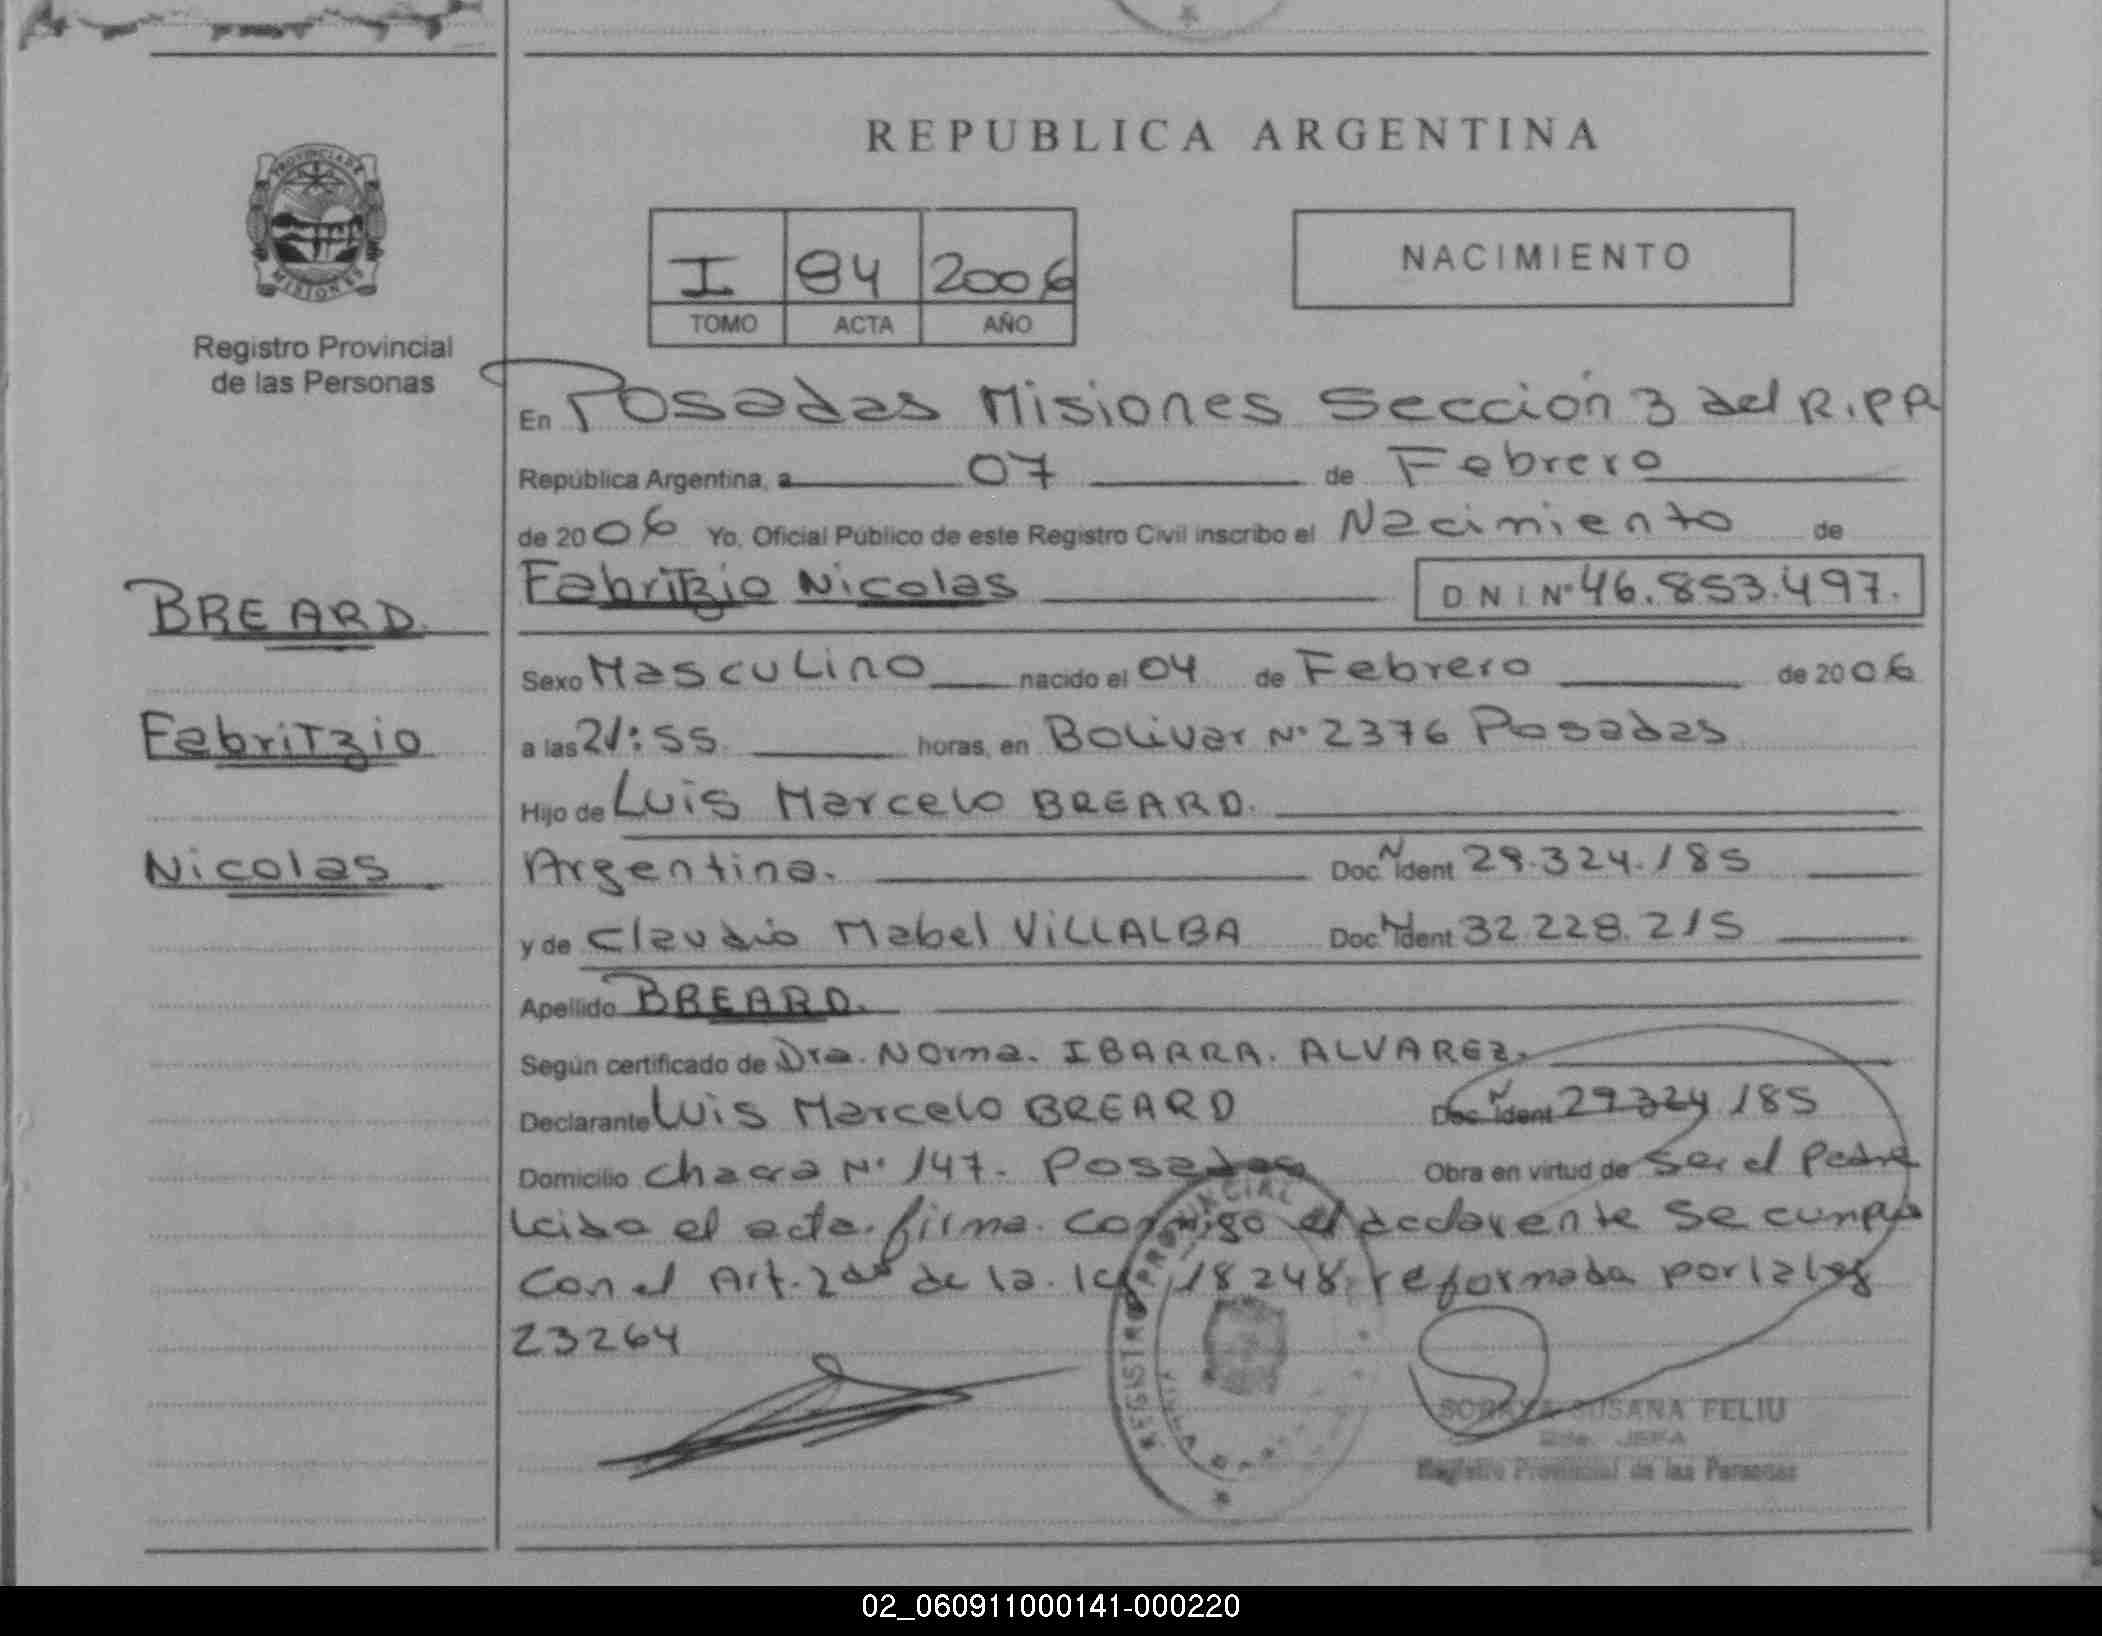 REPUBLICA ARGENTINA
PROVINCIA DE
MISIONES
Registro Provincial
de las Personas
I 84 2006
TOMO ACTA AÑO
NACIMIENTO
En Posadas Misiones Sección 3 del R.P.P.
República Argentina, a 07 de Febrero
de 2006 Yo, Oficial Público de este Registro Civil inscribo el Nacimiento de
Fabritzio Nicolas DNI Nº 46.853.497.
BREARD.
Fabritzio
Nicolas
Sexo Masculino nacido el 04 de Febrero de 2006
a las 21:55 horas, en Bolivar Nº 2376 Posadas
Hijo de Luis Marcelo BREARD.
Argentina. Doc. Nº Ident 29.324.185
y de Claudia Mabel VILLALBA Doc. Nº Ident 32.228.215
Apellido BREARD.
Según certificado de Dra. Norma. IBARRA. ALVAREZ.
Declarante Luis Marcelo BREARD Doc. Nº Ident 29324185
Domicilio chacra Nº 147. Posadas Obra en virtud de ser el Padre
leida el acta. firma. conmigo el declarente se cumple
con el Art. 2do de la. ley 18248. reformada por la ley
23264
REGISTRO PROVINCIAL
SORAYA SUSANA FELIU
JEFA
Registro Provincial de las Personas
02_060911000141-000220